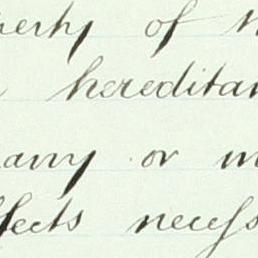 perty of
hereditam
any or m
ffects necess